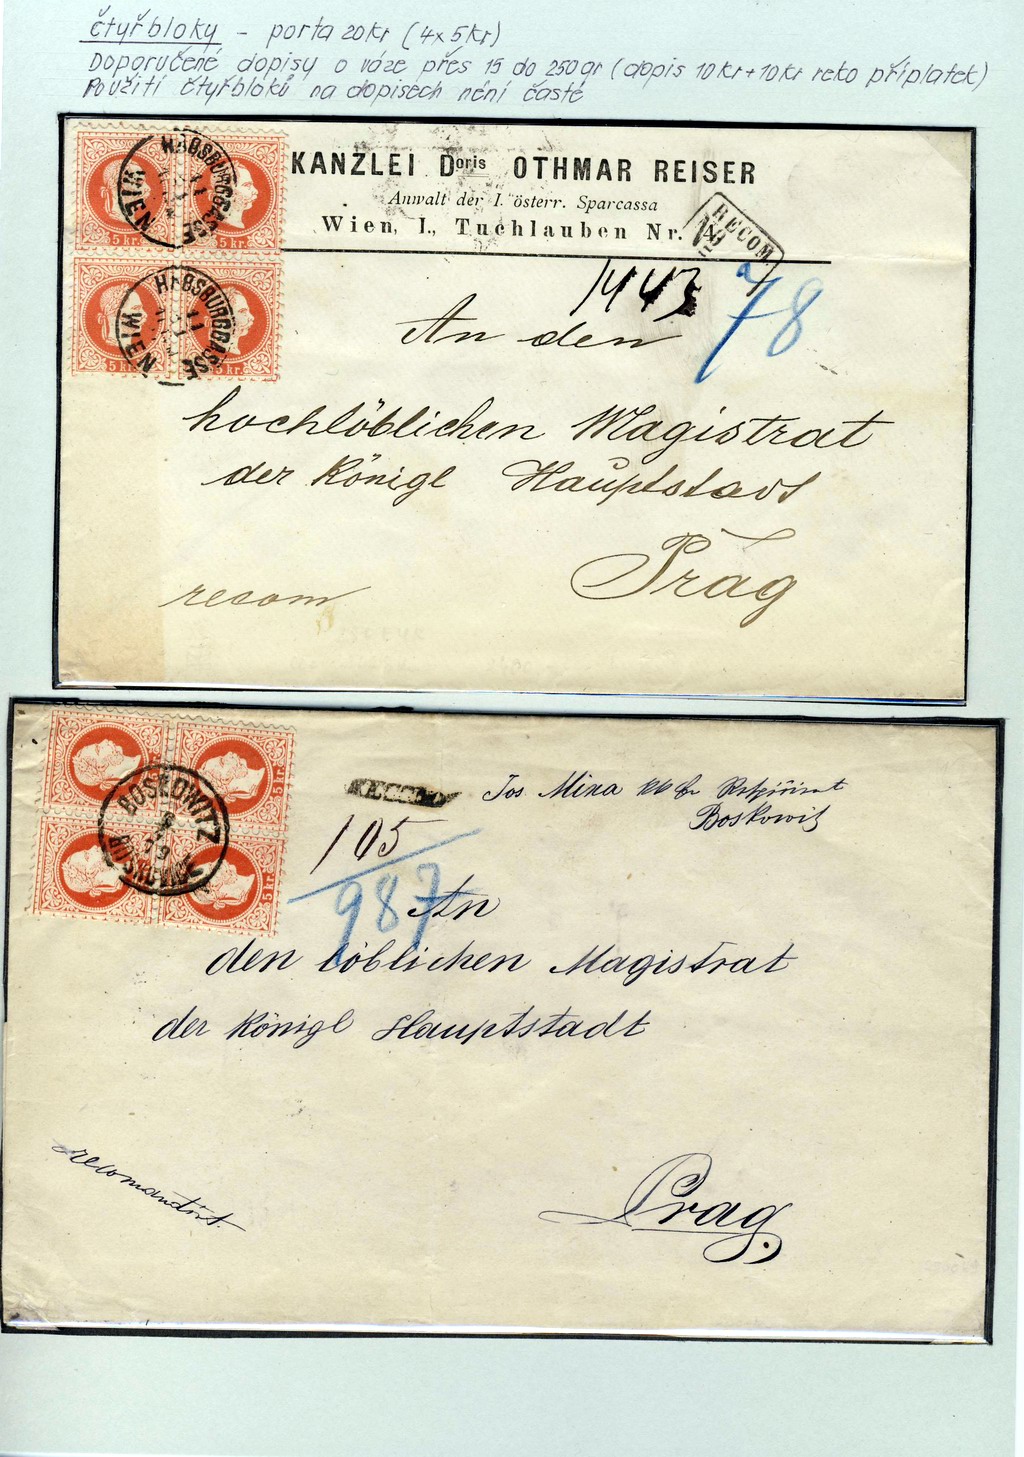 čtyřbloky - porta 20kr (4x5kr)
Doporučené dopisy o váze přes 15 do 250gr (dopis 10kr+10kr reko příplatek)
Použití čtyřbloků na dopisech není časté
KANZLEI Doris OTHMAR REISER
Anwalt der I. österr. Sparcassa
Wien, I., Tuchlauben Nr.
RECOM.
HABSBURGGASSE
WIEN
5 kr.
5 kr.
HABSBURGGASSE
WIEN
5 kr.
5 kr.
1443
78
An den
hochlöblichen Magistrat
der Königl Hauptstadt
Prag
recom
BOSKOWITZ
79
5 kr.
5 kr.
Jos Mina
Boskowitz
105
987
An
den löblichen Magistrat
der Königl Hauptstadt
recomandirt.
Prag.